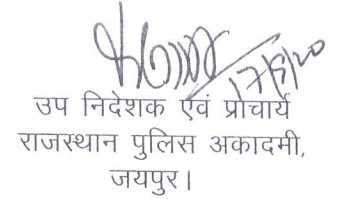 17/8/20
उप निदेशक एवं प्राचार्य
राजस्थान पुलिस अकादमी,
जयपुर।